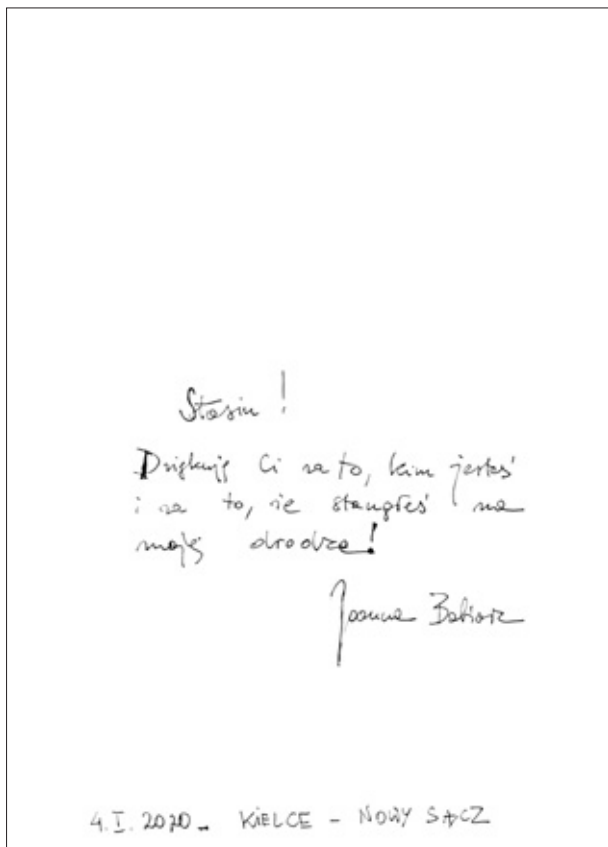 Stasiu!
Dziękuję Ci za to, kim jesteś
i za to, że stanąłeś na
mojej drodze!
Joanna
4.I.2020 - KIELCE - NOWY SĄCZ